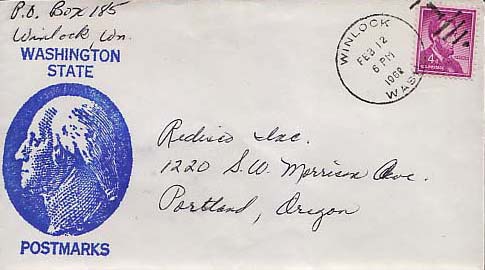 P.O. Box 185
Winlock, Wn.
WASHINGTON
STATE
POSTMARKS
WINLOCK
FEB 12
6 PM
1962
WASH
4¢
Redisco Inc.
1220 S.W. Morrison Ave.
Portland, Oregon